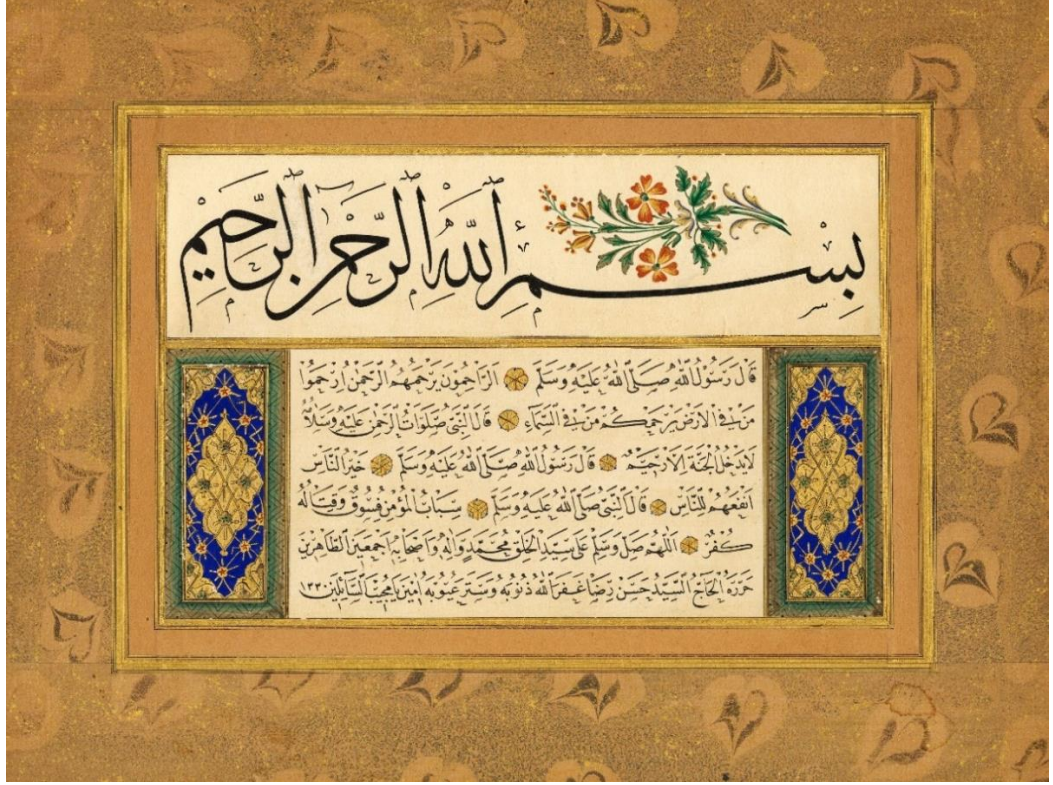 بِسْمِ اللّٰهِ الرَّحْمٰنِ الرَّحِيمِ
قَالَ رَسُولُ اللّٰهِ صَلَّى اللّٰهُ عَلَيْهِ وَسَلَّمَ الرَّاحِمُونَ يَرْحَمُهُمُ الرَّحْمٰنُ اِرْحَمُوا
مَنْ فِي الْاَرْضِ يَرْحَمْكُمْ مَنْ فِي السَّمَاءِ قَالَ النَّبِيُّ صَلَوَاتُ الرَّحْمٰنِ عَلَيْهِ وَسَلَامُهُ
لَا يَدْخُلُ الْجَنَّةَ اِلَّا رَحِيمٌ قَالَ رَسُولُ اللّٰهِ صَلَّى اللّٰهُ عَلَيْهِ وَسَلَّمَ خَيْرُ النَّاسِ
اَنْفَعُهُمْ لِلنَّاسِ قَالَ النَّبِيُّ صَلَّى اللّٰهُ عَلَيْهِ وَسَلَّمَ سِبَابُ الْمُؤْمِنِ فُسُوقٌ وَقِتَالُهُ
كُفْرٌ اَللّٰهُمَّ صَلِّ وَسَلِّمْ عَلٰى سَيِّدِ الْخَلْقِ مُحَمَّدٍ وَاٰلِهِ وَاَصْحَابِهِ اَجْمَعِينَ الطَّاهِرِينَ
حَرَّرَهُ الْحَاجُّ السَّيِّدُ حَسَنْ رِضَا غَفَرَ اللّٰهُ ذُنُوبَهُ وَسَتَرَ عُيُوبَهُ اٰمِينَ يَا مُجِيبَ السَّائِلِينَ ١٣٣٠